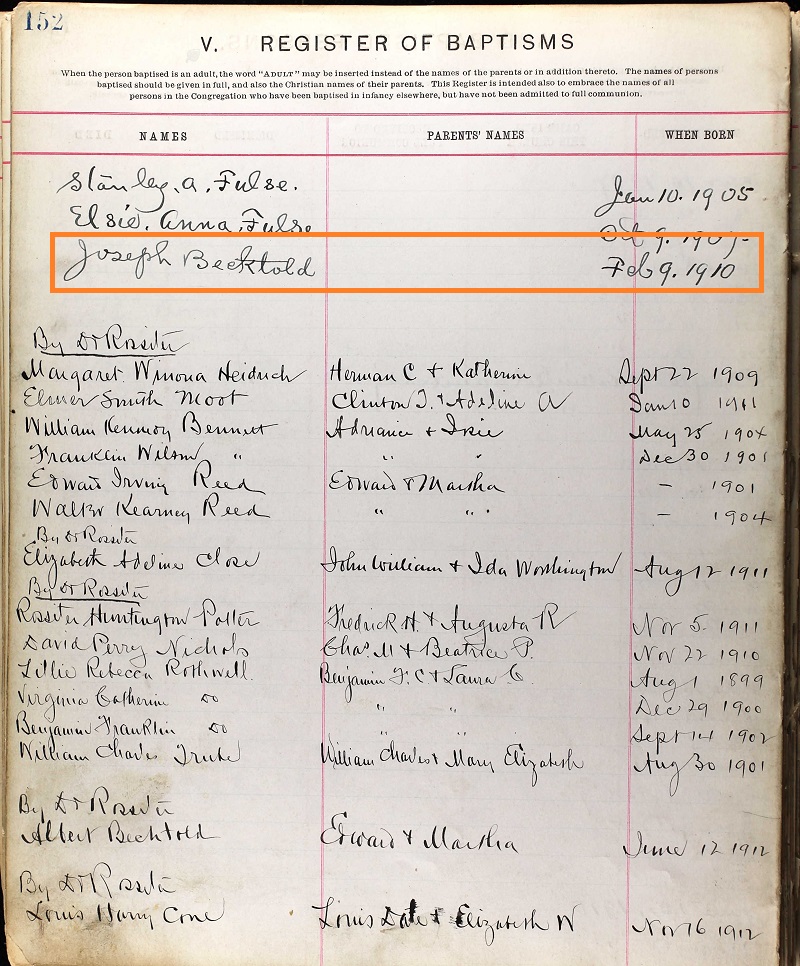 152
V. REGISTER OF BAPTISMS
When the person baptised is an adult, the word "ADULT" may be inserted instead of the names of the parents or in addition thereto. The names of persons
baptised should be given in full, and also the Christian names of their parents. This Register is intended also to embrace the names of all
persons in the Congregation who have been baptised in infancy elsewhere, but have not been admitted to full communion.
NAMES PARENTS' NAMES WHEN BORN
Stanley. a. Fulse. Jan 10. 1905
Elsie. Anna. Fulse Oct 9. 1907-
Joseph Becktold Feb 9. 1910
By Dr Rossiter
Margaret Winona Heidrich Herman C + Katherine Sept 22 1909
Elmer Smith Moot Clinton I. + Adeline A Jan 10 1911
William Kennoy Bennett Adriance + Irie May 25 1904
Franklin Wilson " " " Dec 30 1901
Edward Irving Reed Edward + Martha - 1901
Walter Kearney Reed " " - 1904
By Dr Rossiter
Elizabeth Adeline Close John William + Ida Worthington Aug 12 1911
By Dr Rossiter
Rossiter Huntington Potter Fredrick H. + Augusta R Nov 5. 1911
David Perry Nichols Chas. M + Beatrice P. Nov 22 1910
Lillie Rebecca Rothwell. Benjamin F. C + Laura C. Aug 1 1899
Virginia Catherine do " " Dec 29 1900
Benjamin Franklin do " " Sept 14 1902
William Charles William Charles + Mary Elizabeth Aug 30 1901
By Dr Rossiter
Albert Bechtold Edward + Martha June 12 1912
By Dr Rossiter
Louis Harry Cone Louis Date + Elizabeth W Nov 16 1912